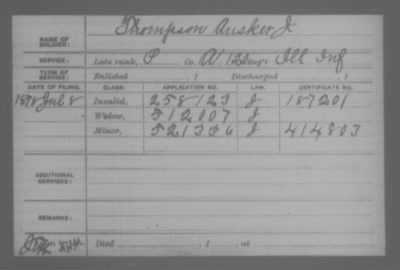 NAME OF SOLDIER: Thompson Ausker J
SERVICE: Late rank, P Co. A, 120 Reg't Ill Inf
TERM OF SERVICE: Enlisted , 1 Discharged , 1
DATE OF FILING. CLASS. APPLICATION NO. LAW. CERTIFICATE NO.
1878 Jul 8 Invalid, 258123 J 187201
Widow, 512007 J
Minor, 521336 J 414803
ADDITIONAL SERVICES:
REMARKS:
Died , 1 , at